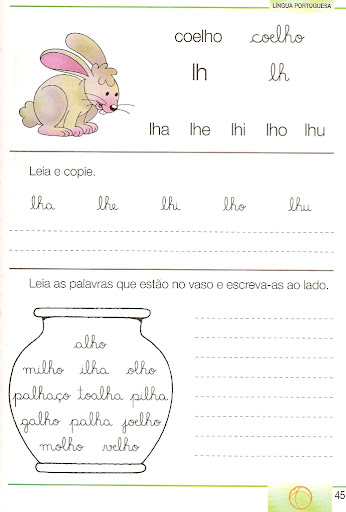 LÍNGUA PORTUGUESA
coelho coelho
lh lh
lha lhe lhi lho lhu
Leia e copie.
lha lhe lhi lho lhu
Leia as palavras que estão no vaso e escreva-as ao lado.
alho
milho ilha olho
palhaço toalha pilha
galho palha joelho
molho velho
45